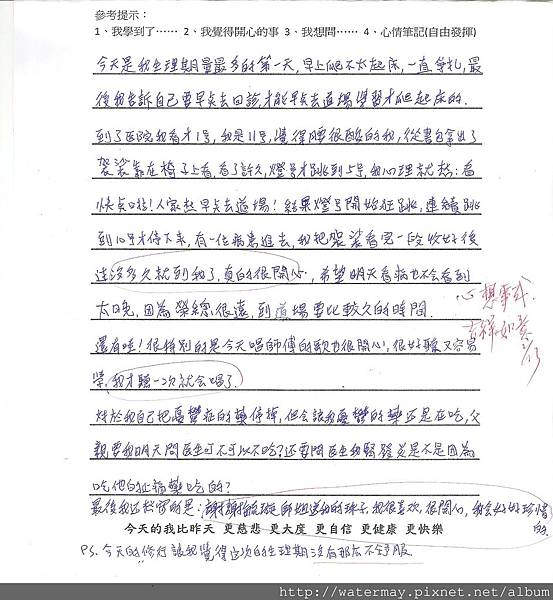 參考提示：
1、我學到了⋯⋯ 2、我覺得開心的事 3、我想問⋯⋯ 4、心情筆記(自由發揮)
今天是我生理期量最多的第一天,早上爬不太起床,一直掙扎,最
後我告訴自己要早点去回診,才能早点去道場學習才爬起床的.
到了医院我看才1号,我是11号,覺得腰很酸的我,從書包拿出了
袈裟靠在椅子上看,看了許久,燈号才跳到上号,我心理就想:看
快点啦!人家想早点去道場!結果燈号開始狂跳,連續跳
到10号才停下來,有一位病患進去,我把袈裟看完一段收好後
達沒多久就到我了,真的很開心,希望明天看病也不會看到
太晚,因為榮總很遠,到道場要比較久的時間.
心想事成
吉祥如意
還有哇!很特別的是今天唱師傅的歌也很開心,很好聽又容易
學,我才聽一次就会唱了.
終於我自己把憂鬱症的藥停掉,但会讓我憂鬱的藥还是在吃,父
親要我明天問医生可不可以不吃?还要問医生我緊發炎是不是因為
吃他的止痛藥吃的?
最後我还想寫的是:謝謝敏璇師姐送我的珠子,我很喜欢,很開心,我会好好珍惜
的.
今天的我比昨天 更慈悲 更大度 更自信 更健康 更快樂
PS.今天的修行讓我覺得这次的生理期沒有那么不舒服
http://watermay.pixnet.net/album